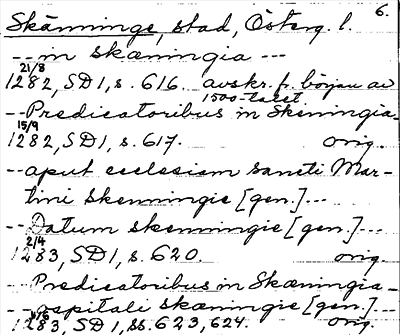 6.
Skänninge, stad, Österg. l.
-- in skæningia ---
21/8
1282, SD 1, s. 616. avskr. fr. början av
1500-talet.
-- Predicatoribus in Skeningia-
15/9
1282, SD 1, s. 617. orig.
-- aput ecclesiam sancti Mar-
tini Skenningie [gen.]---
-- Datum skenningie [gen.]---
2/4
1283, SD 1, s. 620. orig.
-- Predicatoribus in Skæningia -
-- ospitali skæningie [gen.]---
1283, SD 1, ss. 623, 624. orig.